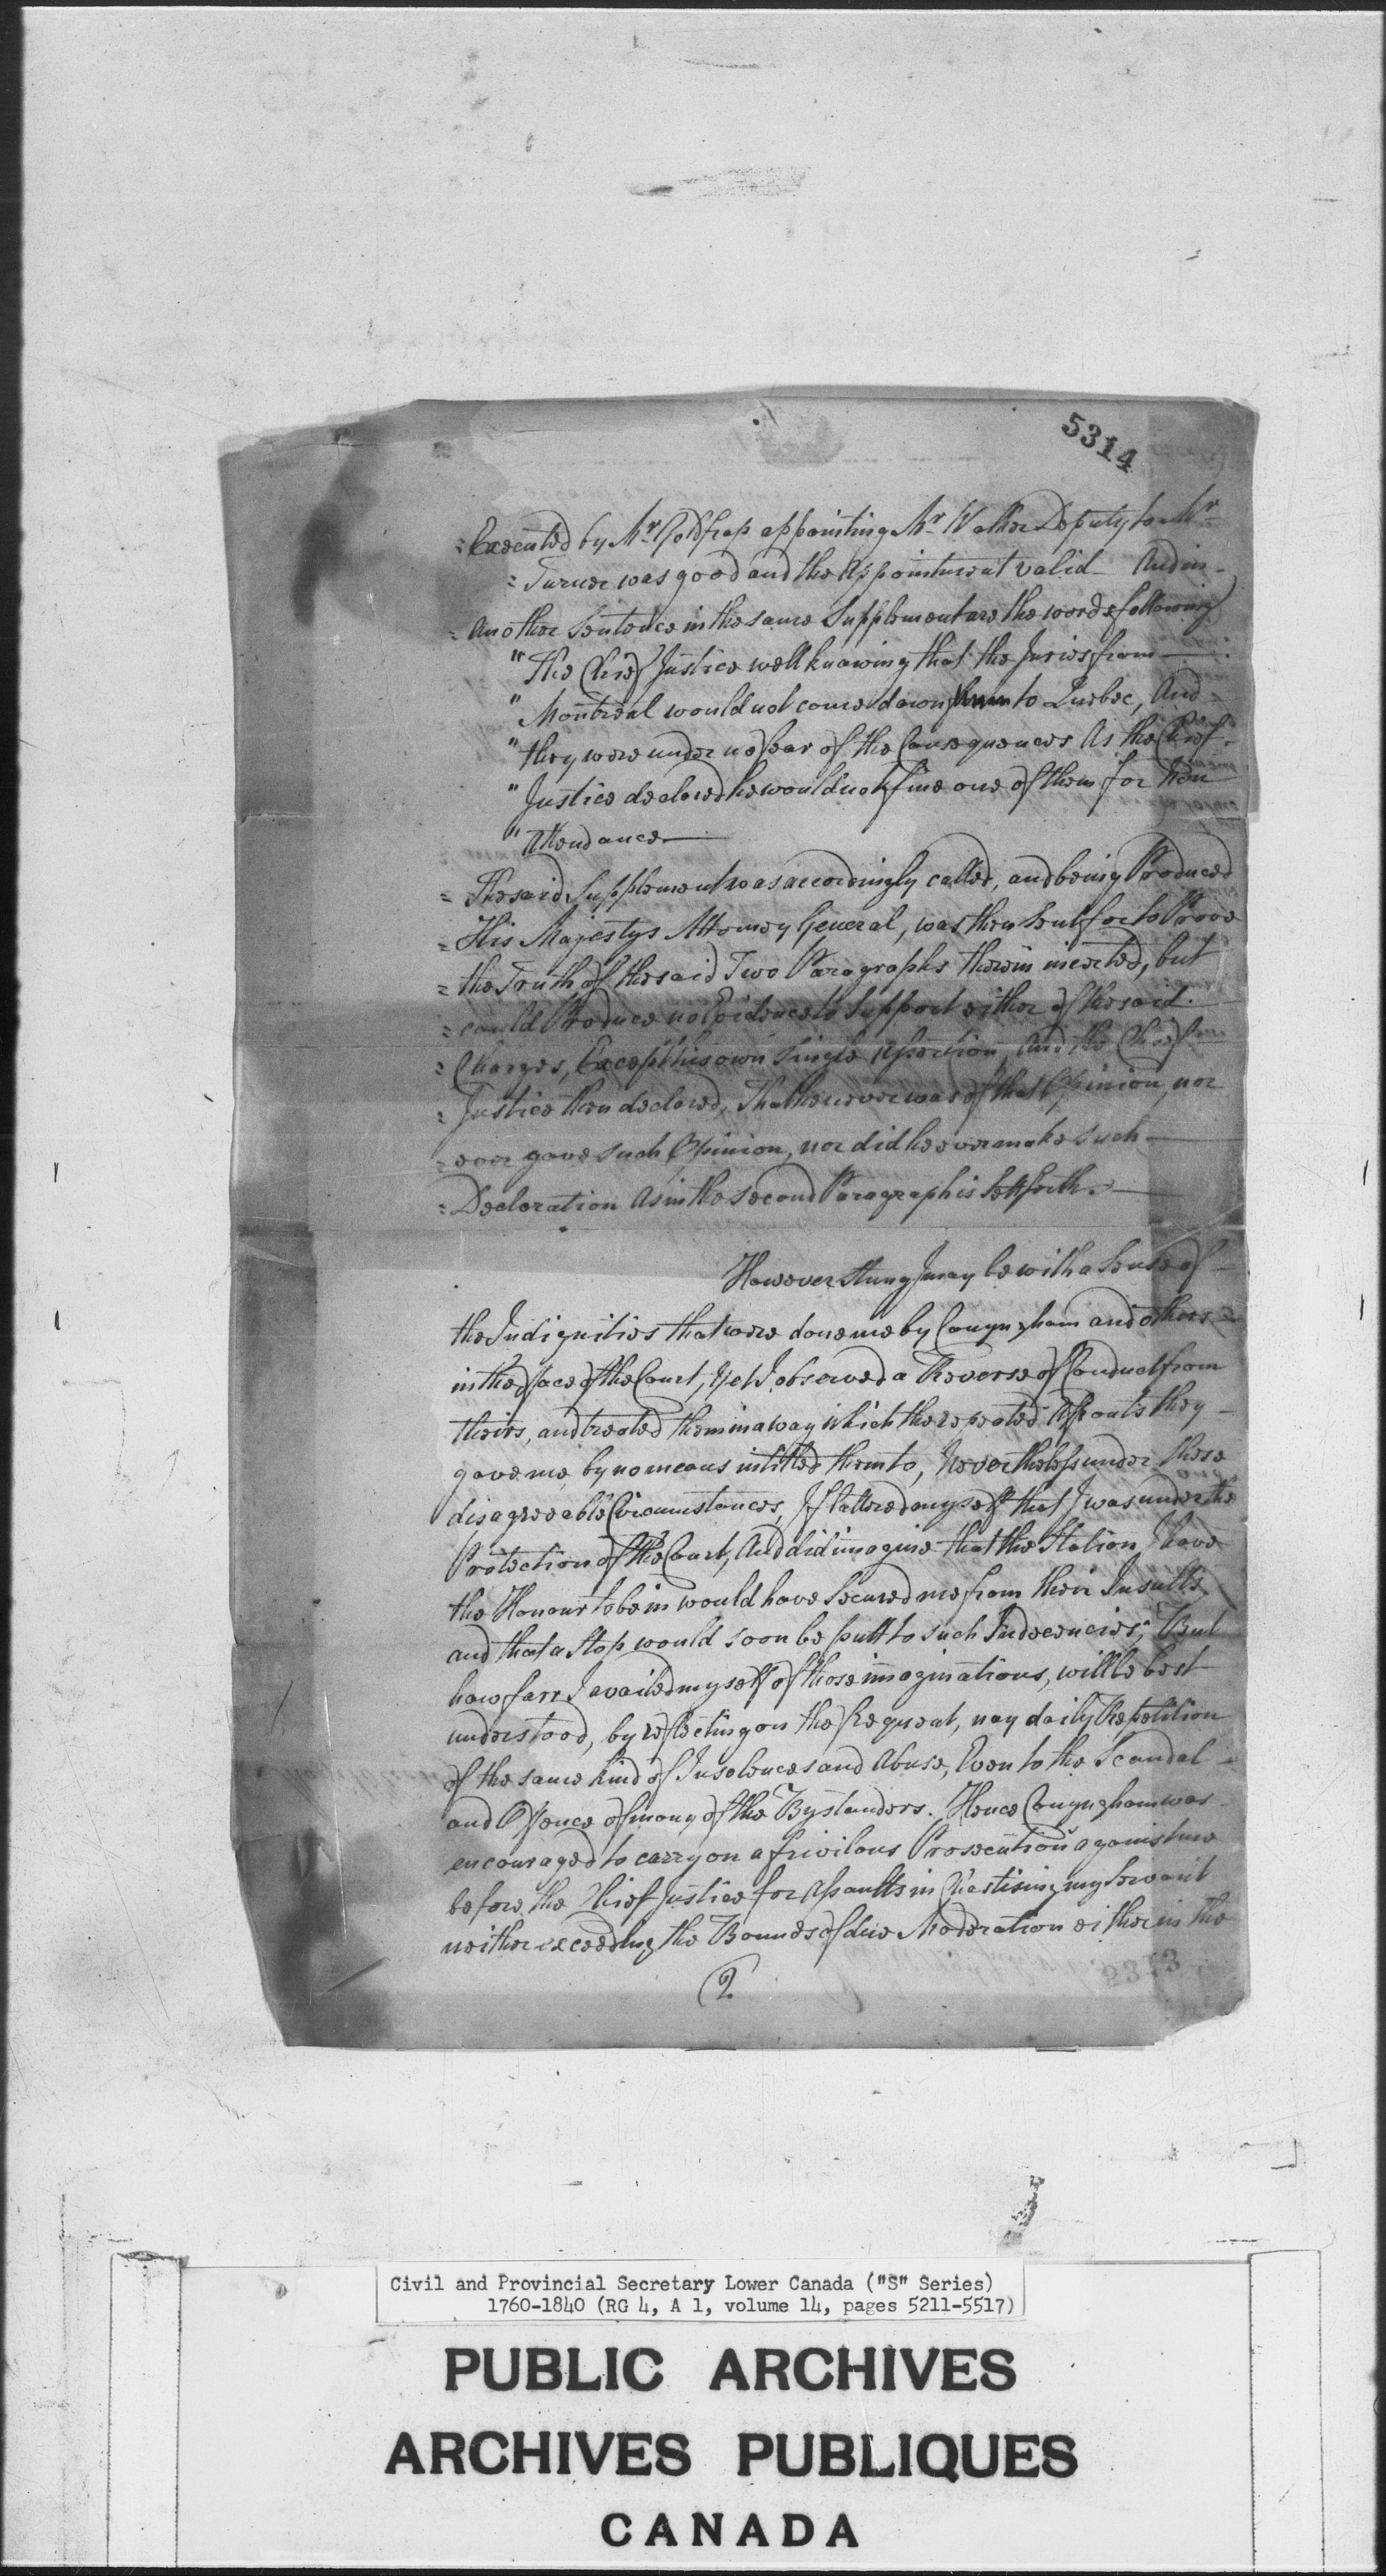 5314
=Executed by Mr Goldfrap appointing Mr Walker Deputy to Mr
=Turner was good and the Appointment valid - And in -
=Another Sentence in the same Supplement are the words following
"The Chief Justice well knowing that the Juries from —
"Montreal would not come down to Quebec, And -
"they were under no fear of the Consequences As the Chief -
"Justice declared he would not fine one of them for Non
"Attendance —
=The said Supplement was accordingly called, and being Produced
=His Majestys Attorney General, was then Sent for to Prove
=the Truth of the said Two Paragraphs therein inserted, but
=could Produce no Evidence to Support either of the said.
=Charges, Except his own Single Assertion, And the Chief
=Justice then declared, That he never was of that Opinion, nor
=ever gave such Opinion, nor did he ever make such —
=Declaration As in the second Paragraph is Sett forth. —
However Stung I may be with a Sense of -
the Indignities that were done me by Conyngham and others =
in the face of the Court, Yet I observed a Reverse of Conduct from
theirs, and treated them in a way which the repeated Affronts they -
gave me, by no means intitled them to, Nevertheless under these
disagreeable Circumstances, I flattered myself that I was under the
Protection of the Court, And did imagine that the Station I have
the Honour to be in would have Secured me from their Insults
and that a Stop would soon be putt to such Indecencies; But
how farr I availed myself of those imaginations, will be best
understood, by reflecting on the frequent, nay daily Repetition
of the same kind of Insolences and Abuse, Even to the Scandal
and Offence of many of the Bystanders. Hence Conyngham was
encouraged to carry on a frivilous Prosecution against me
before the Chief Justice for Assaults in Chastising my Servant
neither exceeding the Bounds of due Moderation either in the
2
5313
Civil and Provincial Secretary Lower Canada ("S" Series)
1760-1840 (RG 4, A 1, volume 14, pages 5211-5517)
PUBLIC ARCHIVES
ARCHIVES PUBLIQUES
CANADA